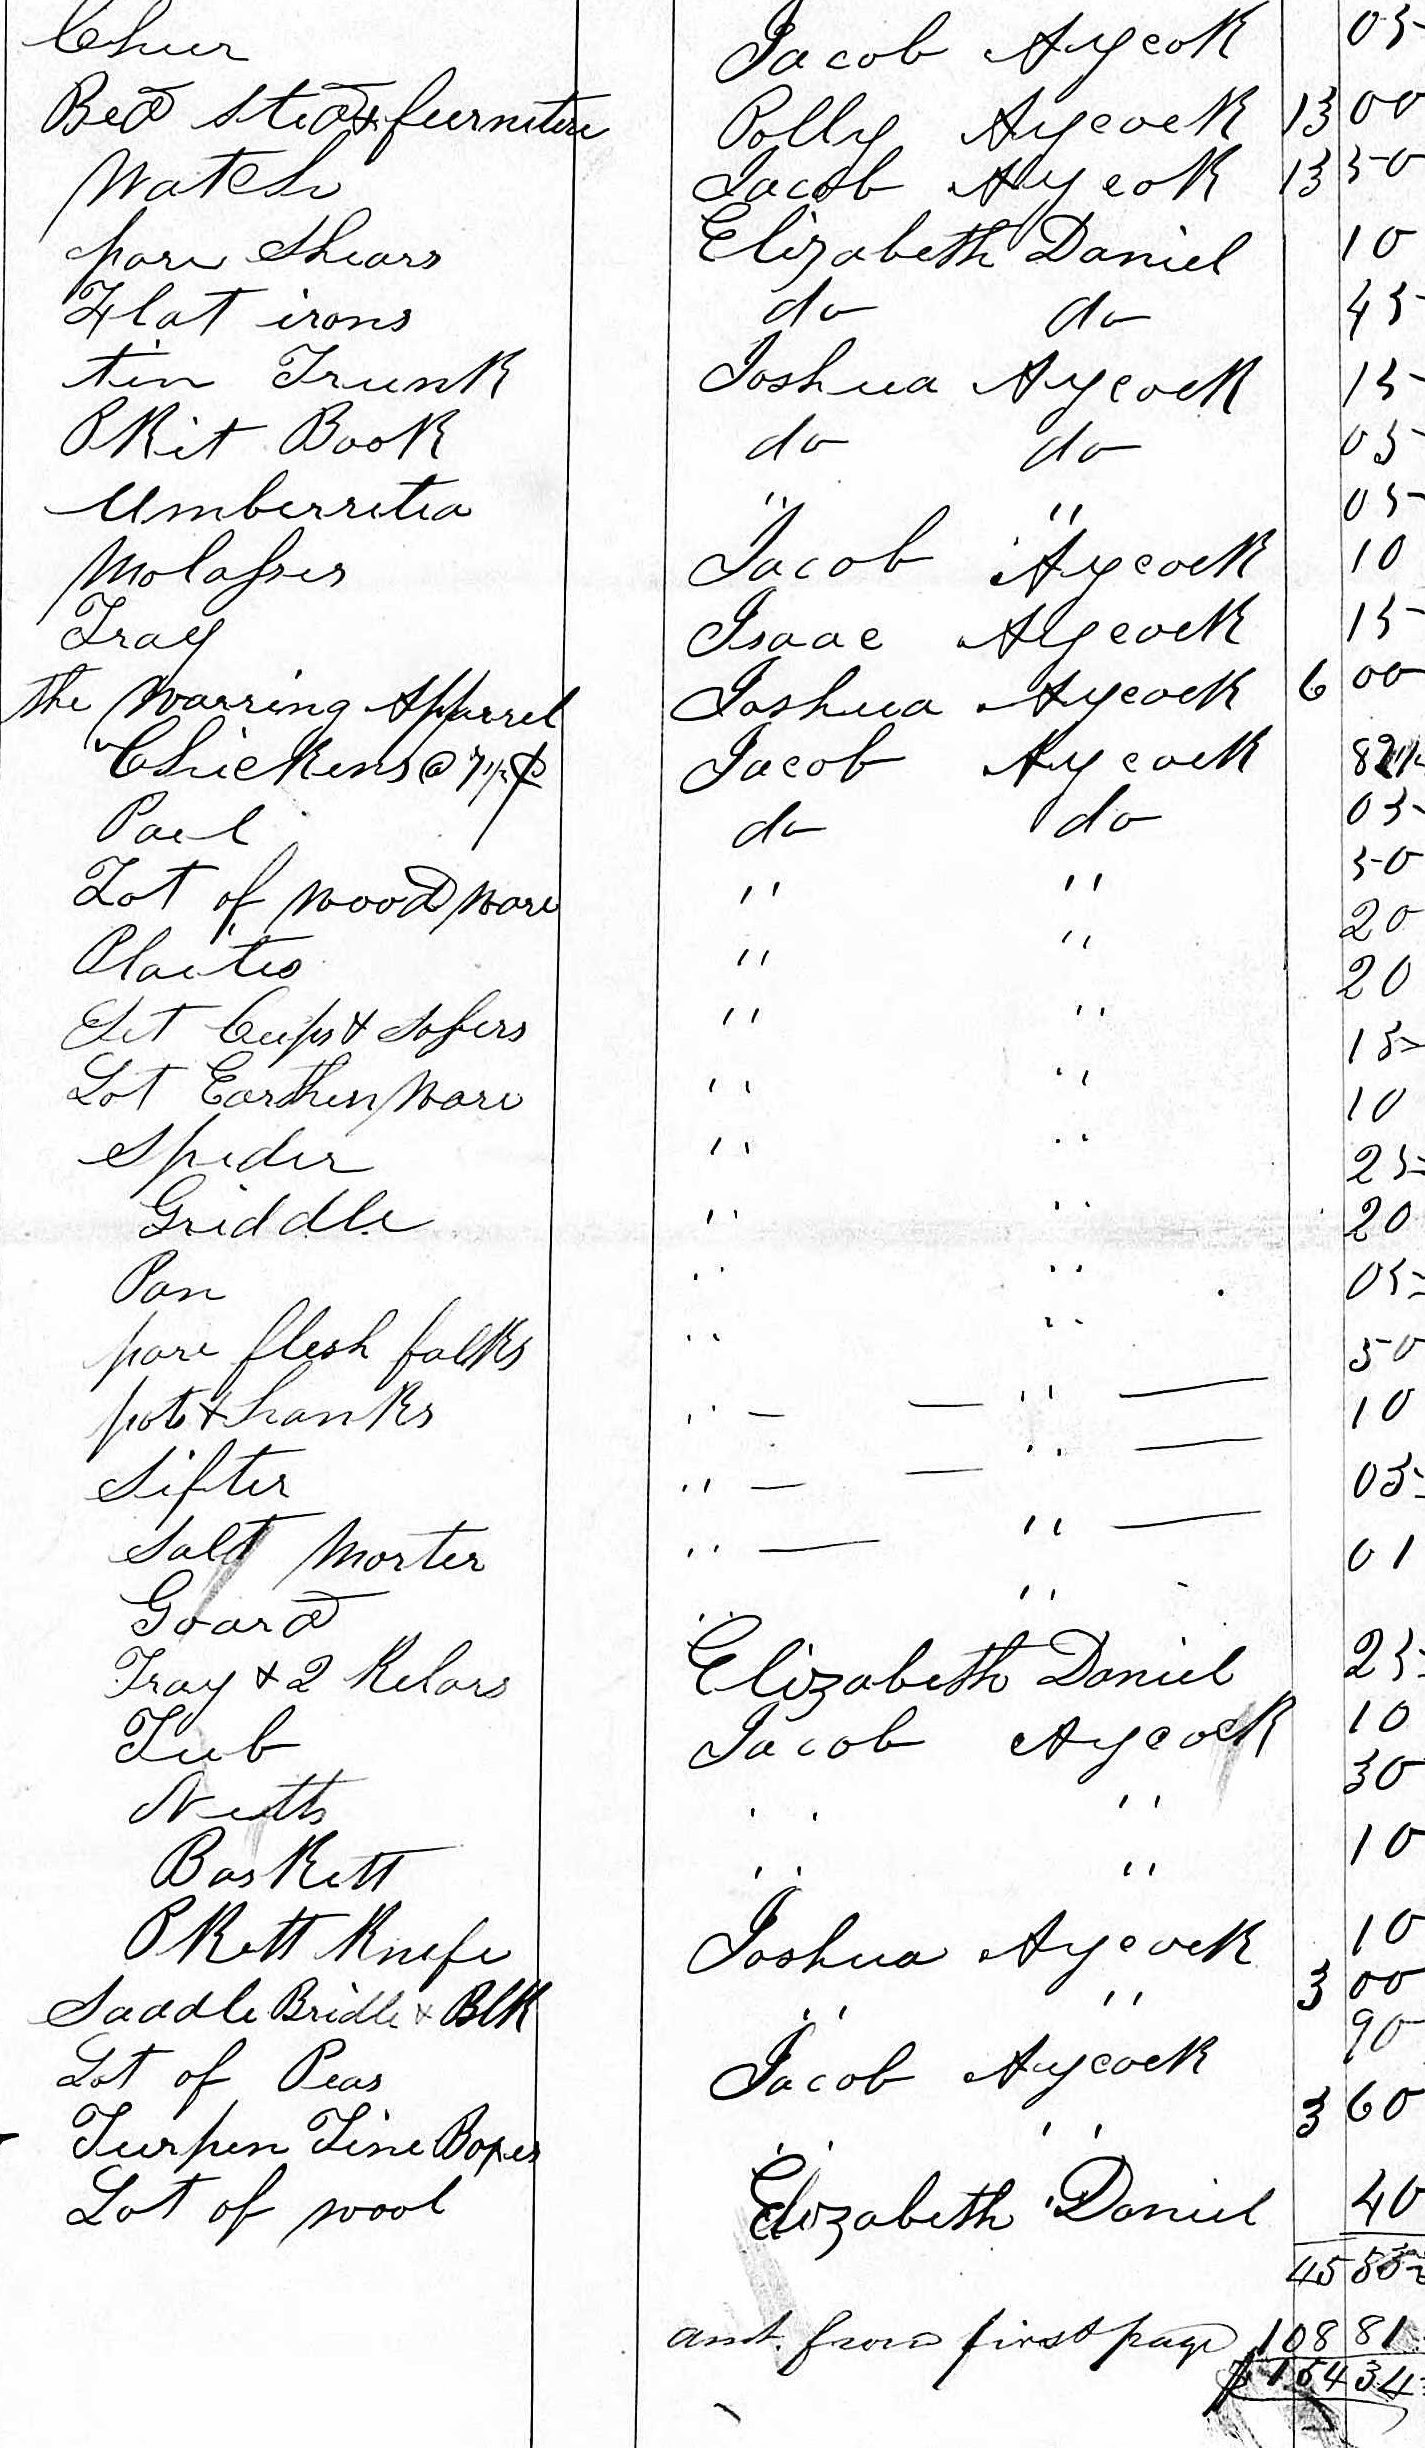 Chur Jacob Aycok 05
Bed sted & furnitere Polly Aycock 13 00
Watch Jacob Aycok 13 50
pare Shears Elizabeth Daniel 10
Flat irons do do 45
tin Trunk Joshua Aycock 15
Pkit Book do do 05
Umberritea " " 05
Molasses Jacob Aycock 10
Tray Isaac Aycock 15
the Warring Apparrel Joshua Aycock 6 00
Chickens @ 7 1/2 Jacob Aycock 82 1/2
Pael do do 05
Lot of Wood Ware " " 50
Plaites " " 20
Set Cups & Sosers " " 20
Lot Earthen Ware " " 15
Spider " " 10
Griddle " " 25
Pan " " 20
pare flesh folks " " 05
pots & hanks " " 50
Sifter " " 10
Salt Morter " " 05
Goard " " 01
Tray & 2 Kelars Elizabeth Daniel 25
Tub Jacob Aycock 10
Netts " " 30
Baskett " " 10
Pkett Knife Joshua Aycock 10
Saddle Bridle & Blk " " 3 00
Lot of Peas Jacob Aycock 90
Turpen Tine Boxes " " 3 60
Lot of wool Elizabeth Daniel 40
45 53
amt. from first page 108 81
$154 34